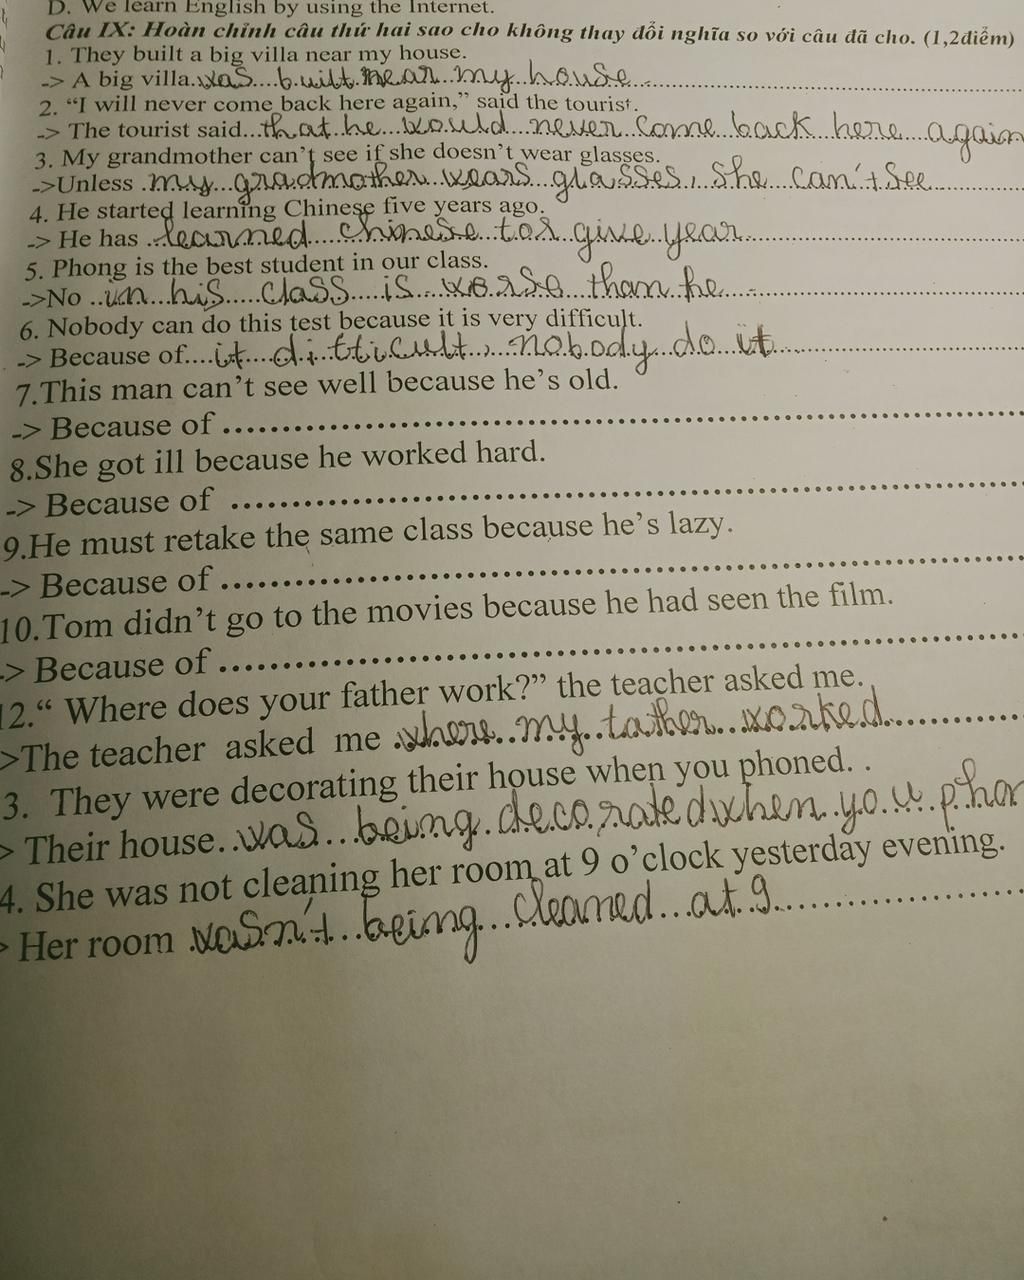 D. We learn English by using the Internet.
Câu IX: Hoàn chỉnh câu thứ hai sao cho không thay đổi nghĩa so với câu đã cho. (1,2điểm)
1. They built a big villa near my house.
-> A big villa was built near my house
2. “I will never come back here again,” said the tourist.
-> The tourist said that he would never come back here again
3. My grandmother can’t see if she doesn’t wear glasses.
->Unless my gradmother wears glasses, she can't see
4. He started learning Chinese five years ago.
-> He has learned chinese for give year
5. Phong is the best student in our class.
->No in his class is worse than he
6. Nobody can do this test because it is very difficult.
-> Because of it difficult, nobody do it
7.This man can’t see well because he’s old.
-> Because of
8.She got ill because he worked hard.
-> Because of
9.He must retake the same class because he’s lazy.
-> Because of
10.Tom didn’t go to the movies because he had seen the film.
-> Because of
12.“ Where does your father work?” the teacher asked me.
>The teacher asked me where my father worked
3. They were decorating their house when you phoned. .
> Their house was being decorated when you phon
4. She was not cleaning her room at 9 o’clock yesterday evening.
> Her room wasn't being cleaned at 9